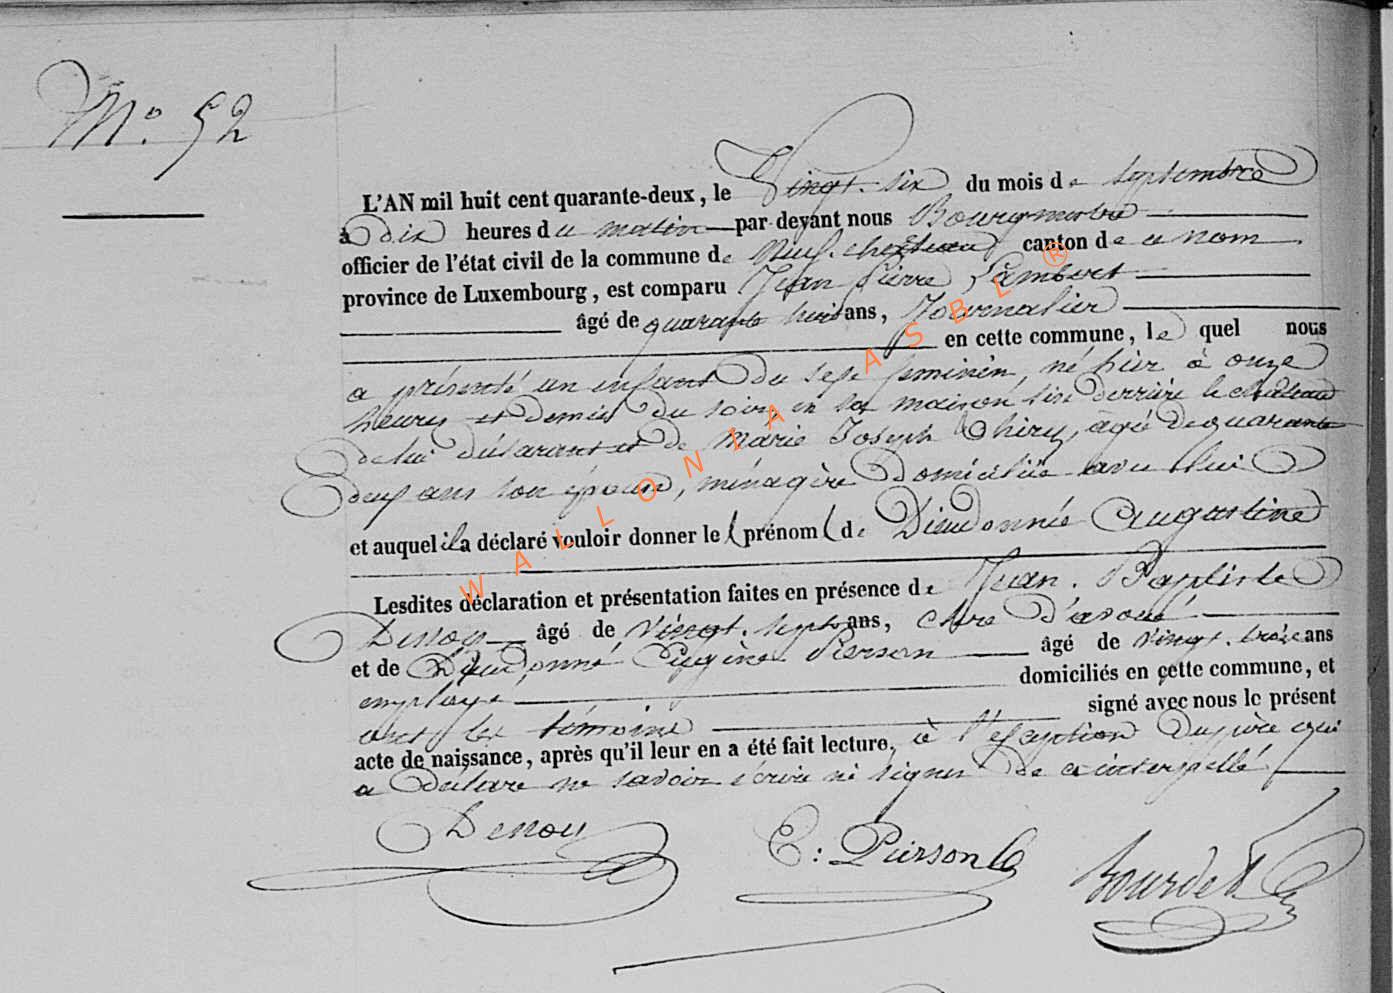 N° 52
L'AN mil huit cent quarante-deux, le Vingt-six du mois de Septembre
à dix heures du matin par devant nous Bourgmestre
officier de l'état civil de la commune de Neufchateau canton de ce nom
province de Luxembourg, est comparu Jean Pierre Lambert
âgé de quarante huit ans, Journalier
en cette commune, lequel nous
a présenté un enfant du sexe feminin, né hier à onze
heures et demie du soir, en sa maison sise derrière le château
de lui déclarant et de Marie Joseph Thiry, agée de quarante
deux ans son épouse, ménagère domiciliée avec lui
et auquel il a déclaré vouloir donner le prénom de Dieudonnée Augustine
Lesdites déclaration et présentation faites en présence de Jean Baptiste
Denoy âgé de vingt-sept ans, clerc d'avoué
et de Dieudonné Eugène Pierson âgé de vingt-trois ans
employé domiciliés en cette commune, et
ont les témoins signé avec nous le présent
acte de naissance, après qu'il leur en a été fait lecture, à l'exception du père qui
a déclaré ne savoir écrire ni signer de ce interpellé
Denoy E: Pierson Bourdet
WALLONIA ASBL ®